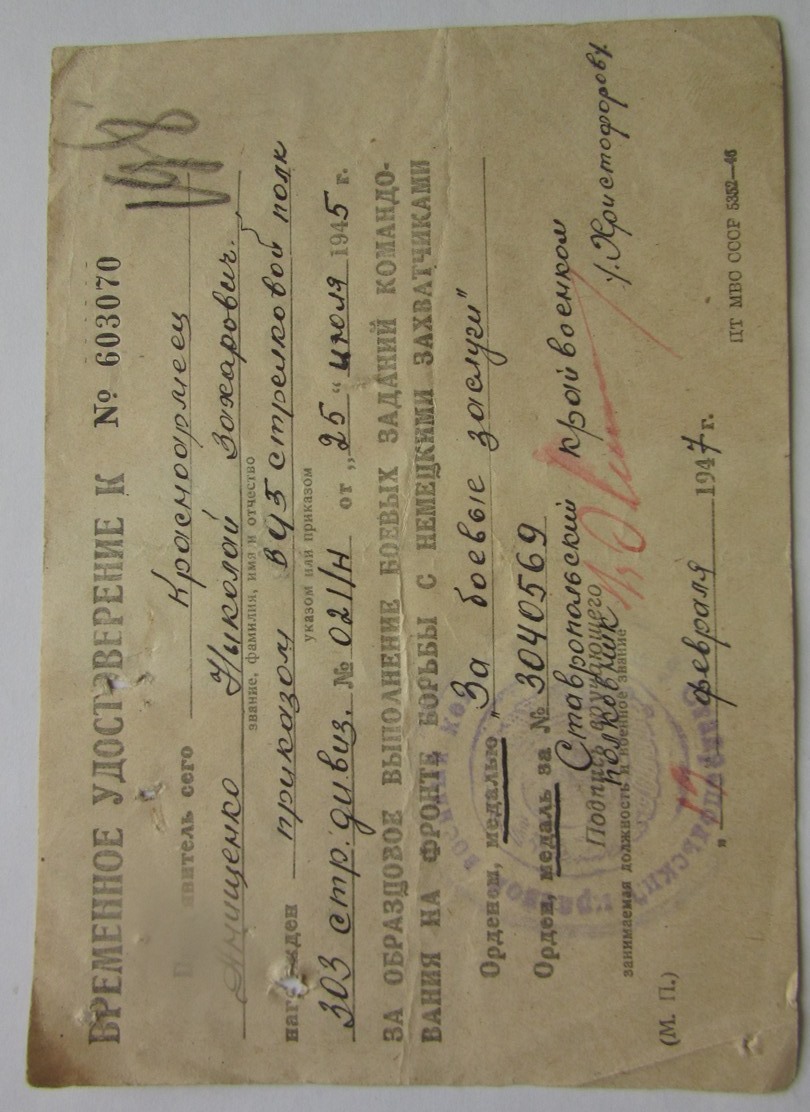 ВРЕМЕННОЕ УДОСТОВЕРЕНИЕ К № 603070
Красноармеец
Николай Захарович.
звание, фамилия, имя и отчество
награжден приказом 875 стрелковой полк
указом или приказом
303 стр. дивиз. № 021/н от „25 “ июля 1945 г.
ЗА ОБРАЗЦОВОЕ ВЫПОЛНЕНИЕ БОЕВЫХ ЗАДАНИЙ КОМАНДО-
ВАНИЯ НА ФРОНТЕ БОРЬБЫ С НЕМЕЦКИМИ ЗАХВАТЧИКАМИ
Орденом, медалью „За боевые заслуги"
Орден, медаль за № 3040569
Ставропольский крайвоенком
Подпись вручающего
полковник /.Христофоров/
занимаемая должность и военное звание
(М. П.) „19 " февраля 1947 г.
ПТ МВС СССР 5352—46